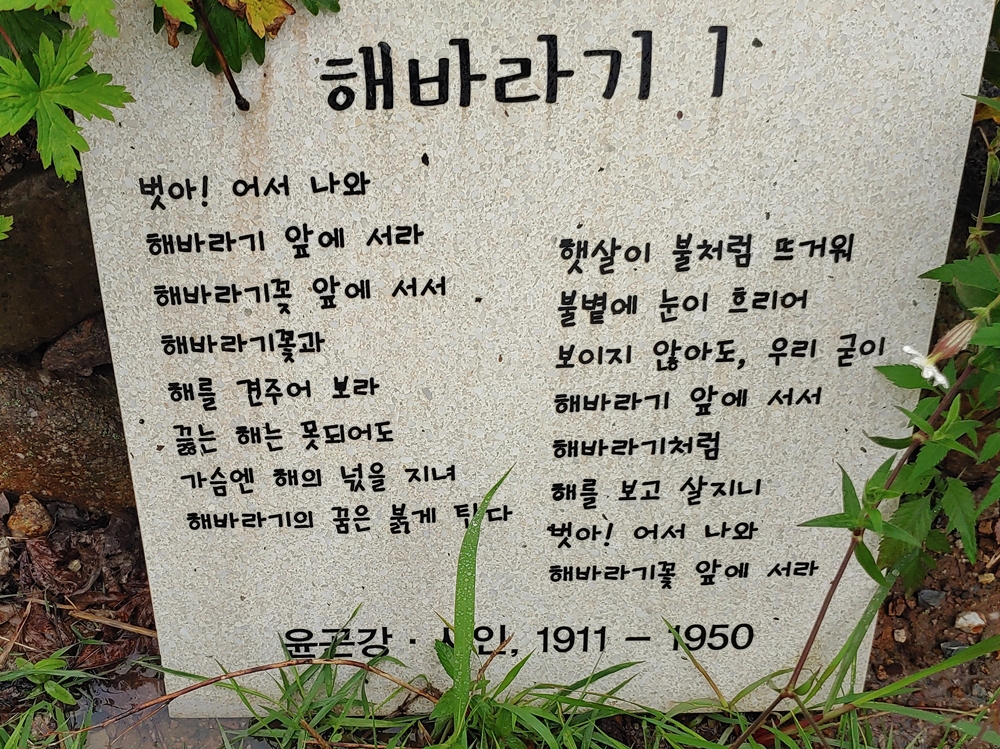 해바라기 1
벗아! 어서 나와
해바라기 앞에 서라
해바라기꽃 앞에 서서
해바라기꽃과
해를 견주어 보라
끓는 해는 못되어도
가슴엔 해의 넋을 지녀
해바라기의 꿈은 붉게
햇살이 불처럼 뜨거워
불볕에 눈이 흐리어
보이지 않아도, 우리 굳이
해바라기 앞에 서서
해바라기처럼
해를 보고 살지니
벗아! 어서 나와
해바라기꽃 앞에 서라
윤곤강 · 시인, 1911 – 1950